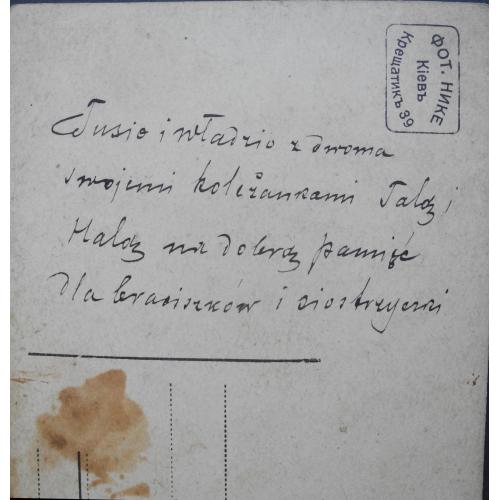 ФОТ. НИКЕ
Кіевъ
Крещатикъ 39
Tusie i Władzio z dwoma
swojemi koleżankami Talą i
Halą na dobrą pamięć
dla braciszków i siostrzyczki